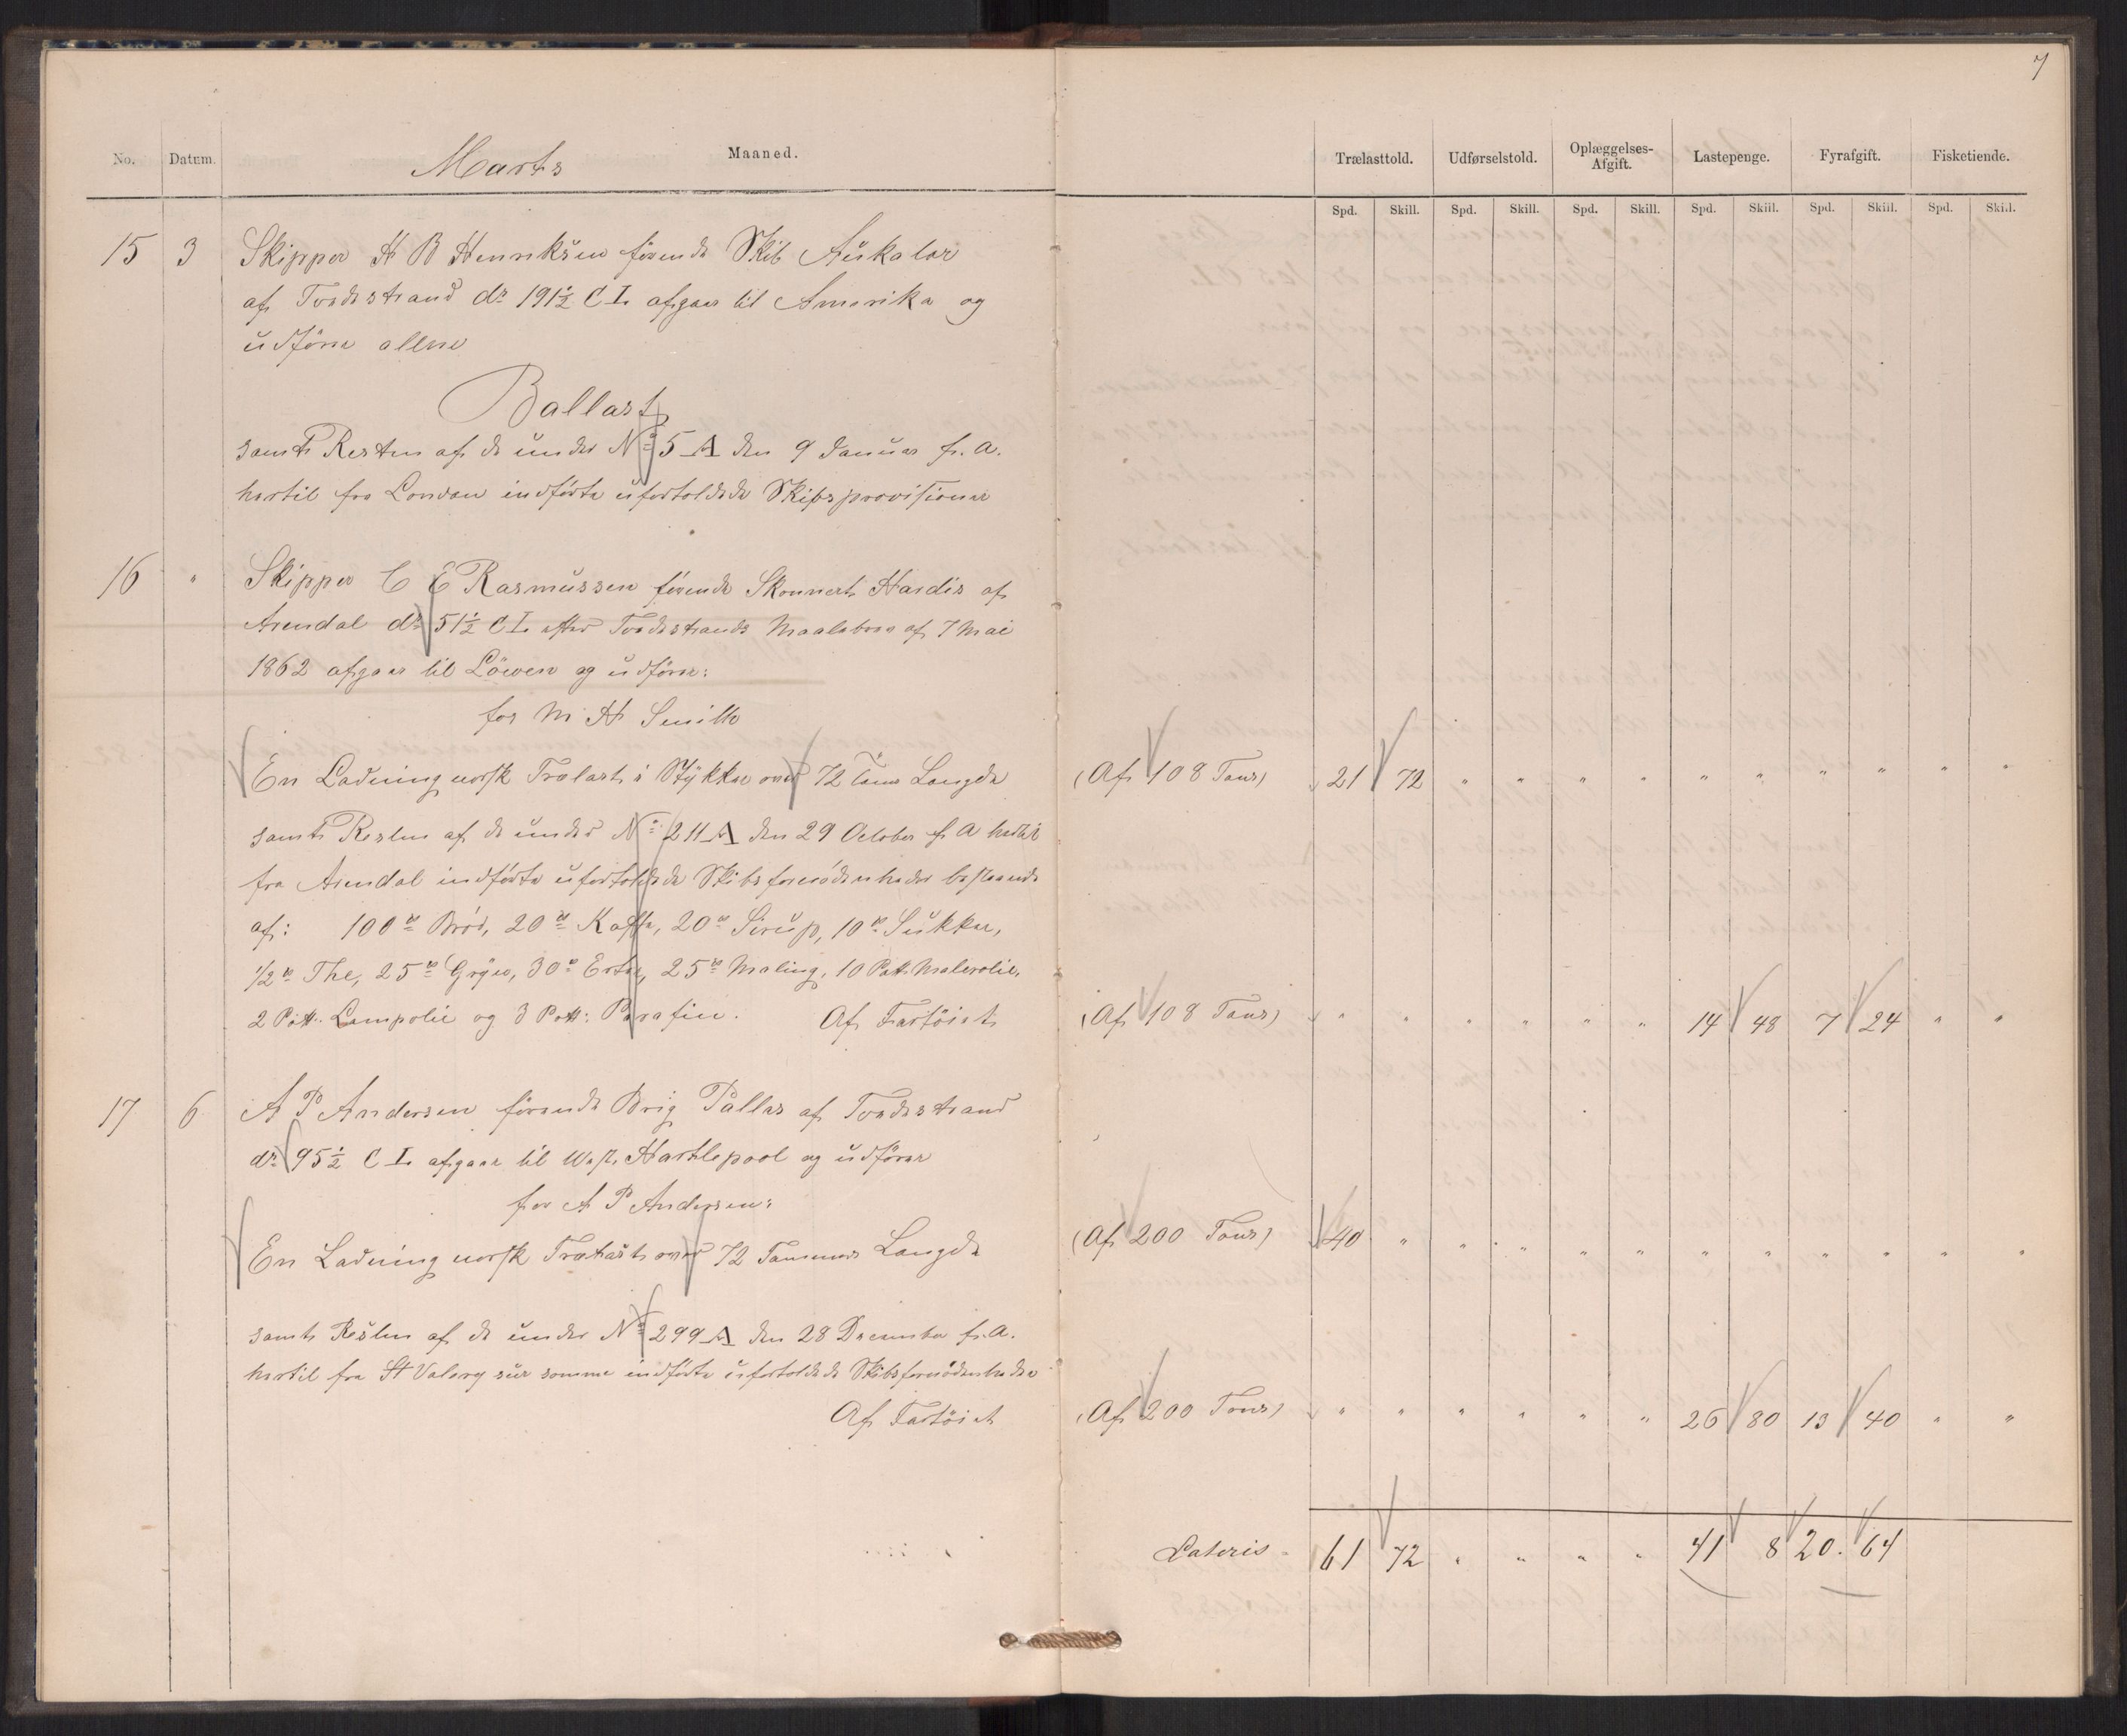 7
No. Datum. Marts Maaned. Trælasttold. Udførselstold. Oplæggelses-Afgift. Lastepenge. Fyrafgift. Fisketiende.
Spd. Skill. Spd. Skill. Spd. Skill. Spd. Skill. Spd. Skill. Spd. Skill.
15 3 Skipper H B Henriksen förende Skib Aukalor
af Tvedestrand dr 191½ CL afgaar til Amerika og
udförer allene
Ballast
samt Resten af de under No 5 A den 9 Januar f. A.
hertil fra London indförte ufortoldede Skibsprovisioner
16 " Skipper C E Rasmussen förende Skonnert Hardis af
Arendal dr 51½ CL efter Tvedestrands Maalebrev af 7 Mai
1862 afgaar til Löwen og udförer:
for M H Smith
En Ladning norsk Trælast i Stykker over 72 Tom Længde (Af 108 Tons) 21 72 " " " " " " " " " "
samt Resten af de under No 211 A den 29 October f A hertil
fra Arendal indförte ufortoldede Skibsfornödenheder bestaaende
af: 100 ℔ Bröd, 20 ℔ Kaffe, 20 ℔ Sirup, 10 ℔ Sukker,
1/2 ℔ The, 25 ℔ Gryn, 30 ℔ Erter, 25 ℔ Maling, 10 Pott. Malerolie,
2 Pott. Lampolie og 3 Pott: Parafin. Af Fartöiet (Af 108 Tons) " " " " " " 14 48 7 24 " "
17 6 A P Andersen förende Brig Pallas af Tvedestrand
dr 95½ CL afgaar til West Hartlepool og udförer
for A P Andersen:
En Ladning norsk Trælast over 72 Tommers Længde (Af 200 Tons) 40 " " " " " " " " " " "
samt Resten af de under No 299 A den 28 December f. A.
hertil fra St Valery sur somme indförte ufortoldede Skibsfornödenheder
Af Fartöiet (Af 200 Tons) " " " " " " 26 80 13 40 " "
Lateris 61 72 " " " " 41 8 20. 64